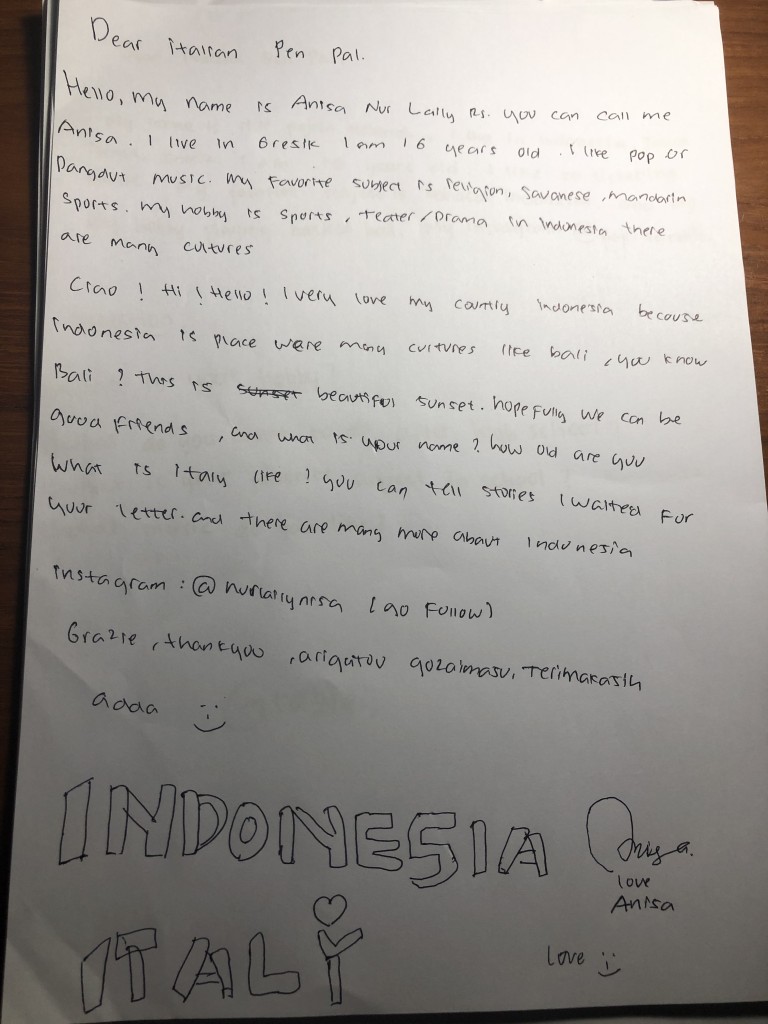 Dear italian Pen pal.
Hello, my name is Anisa Nur Laily Rs. you can call me
Anisa. I live in Gresik I am 16 years old. i like pop or
Dangdut music. my favorite subject is religion, Javanese, mandarin
Sports. my hobby is sports, teater/Drama in Indonesia there
are many cultures
Ciao! Hi! Hello! I very love my country indonesia because
indonesia is place were many cultures like bali, you know
Bali? this is beautiful sunset. hopefully we can be
good friends, and what is your name? how old are you
what is italy like? you can tell stories I waited for
your letter. and there are many more about Indonesia
instagram: @nurlailynrsa (go follow)
Grazie, thankyou, arigatou gozaimasu, terimakasih
adda :)
INDONESIA
love
Anisa
ITALY
love :)